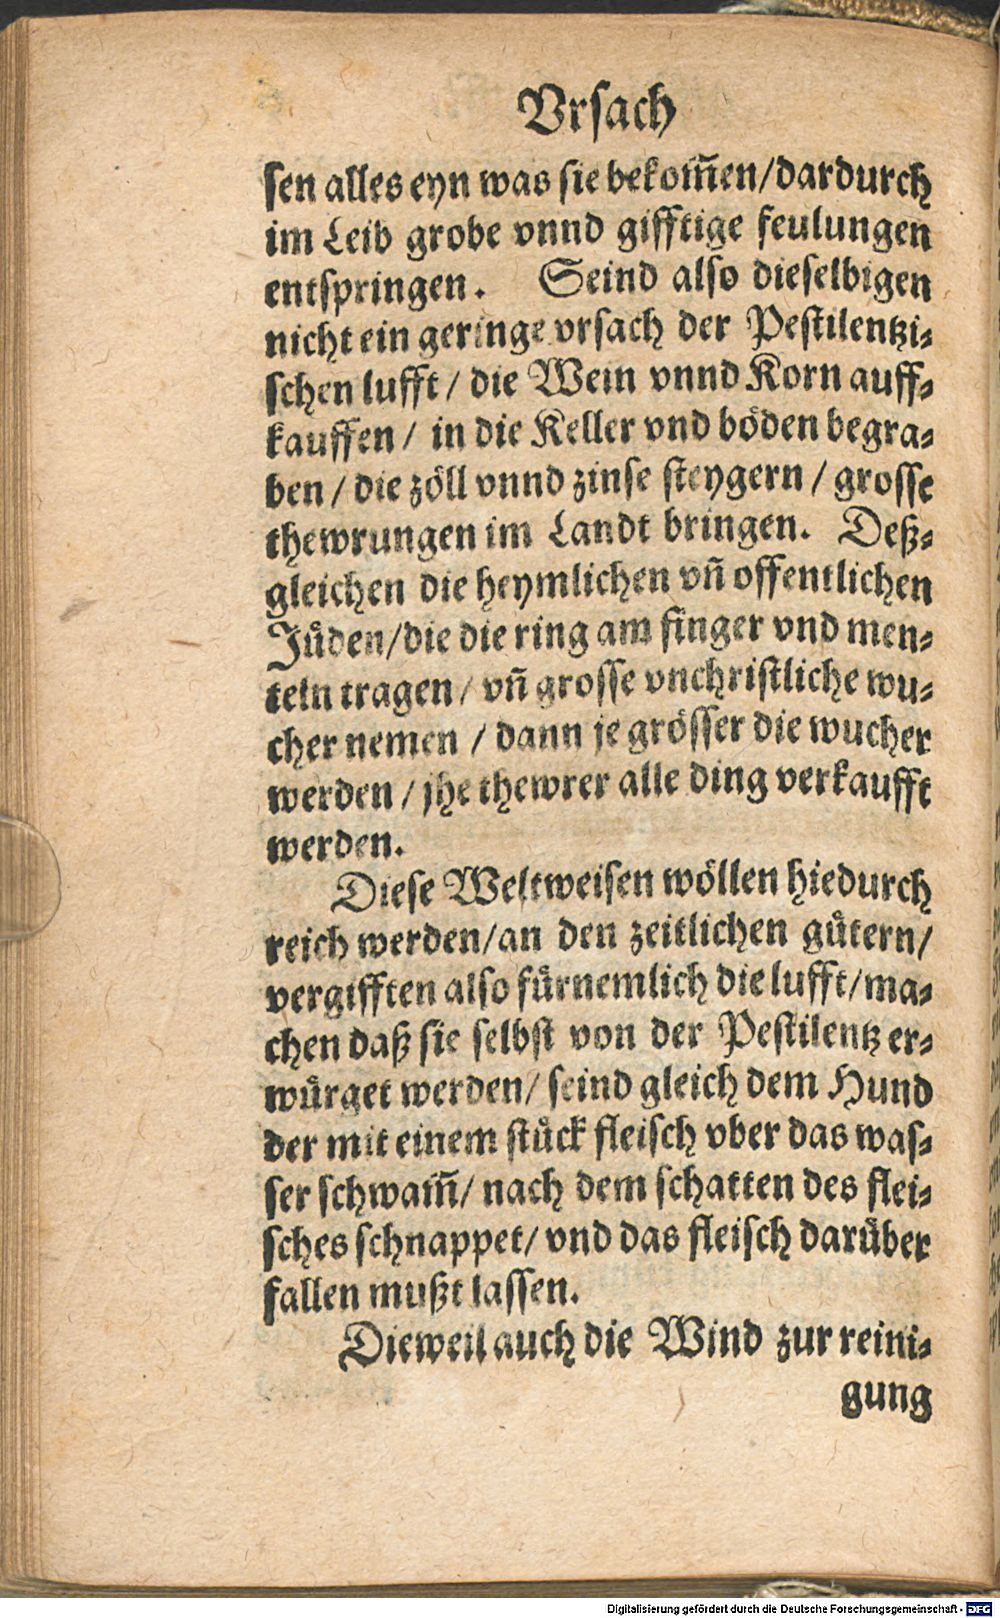 Vrsach
sen alles eyn was sie bekom̃en/dardurch
im Leib grobe vnnd gifftige feulungen
entspringen. Seind also dieselbigen
nicht ein geringe vrsach der Pestilentzi⸗
schen lufft/ die Wein vnnd Korn auff⸗
kauffen/ in die Keller vnd böden begra⸗
ben/ die zöll vnnd zinse steygern/ grosse
thewrungen im Landt bringen. Deß⸗
gleichen die heymlichen vñ offentlichen
Jůden/die die ring am finger vnd men⸗
teln tragen/ vñ grosse vnchristliche wu⸗
cher nemen/ dann je grösser die wucher
werden/ jhe thewrer alle ding verkaufft
werden.
Diese Weltweisen wöllen hiedurch
reich werden/an den zeitlichen gůtern/
vergifften also fůrnemlich die lufft/ma⸗
chen daß sie selbst von der Pestilentz er⸗
wůrget werden/ seind gleich dem Hund
der mit einem stůck fleisch vber das was⸗
ser schwam̃/ nach dem schatten des flei⸗
sches schnappet/ vnd das fleisch darůber
fallen mußt lassen.
Dieweil auch die Wind zur reini⸗
gung
Digitalisierung gefördert durch die Deutsche Forschungsgemeinschaft - DFG